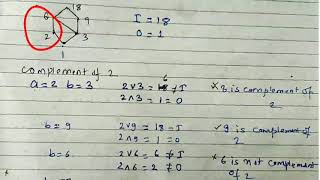 18
6
9
2
3
1
I = 18
0 = 1
complement of 2
a=2 b=3 2∨3 = 6 ≠ I
2∧3 = 1 = 0
is complement of 2
b=9 2∨9 = 18 = I
2∧9 = 1 = 0
✓ 9 is complement of 2
b=6 2∨6 = 6 ≠ I
2∧6 = 2 ≠ 0
6 is not complement of 2